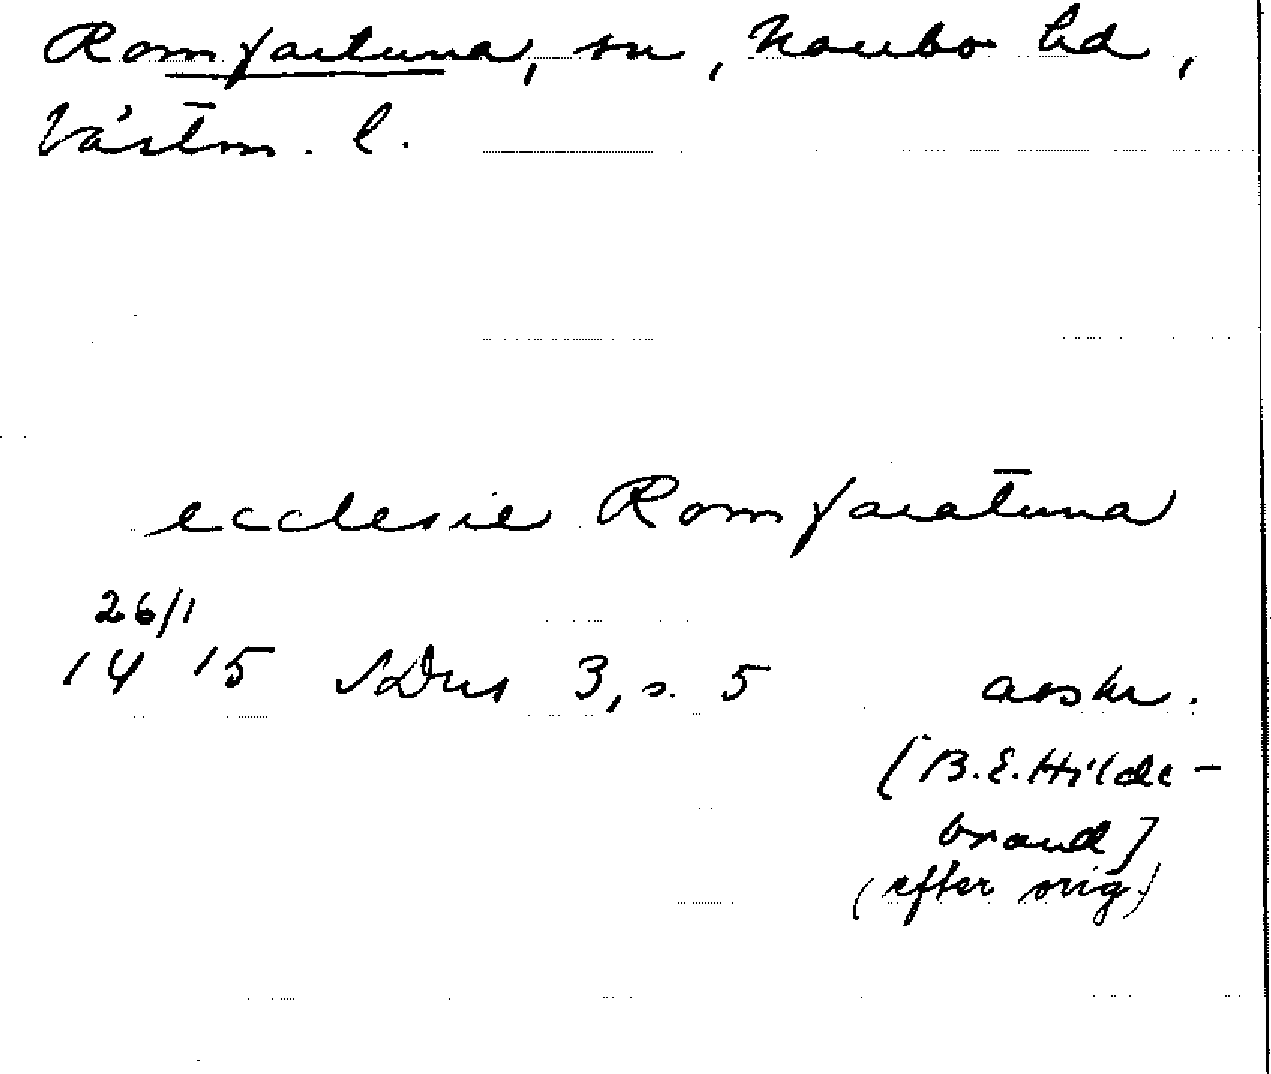 Romfartuna, sn, Norrbo hd,
Västm. l.
ecclesie Romfaratuna
26/1
1415 SDns 3, s. 5 avskr.
[B.E. Hilde-
brand]
(efter orig.)